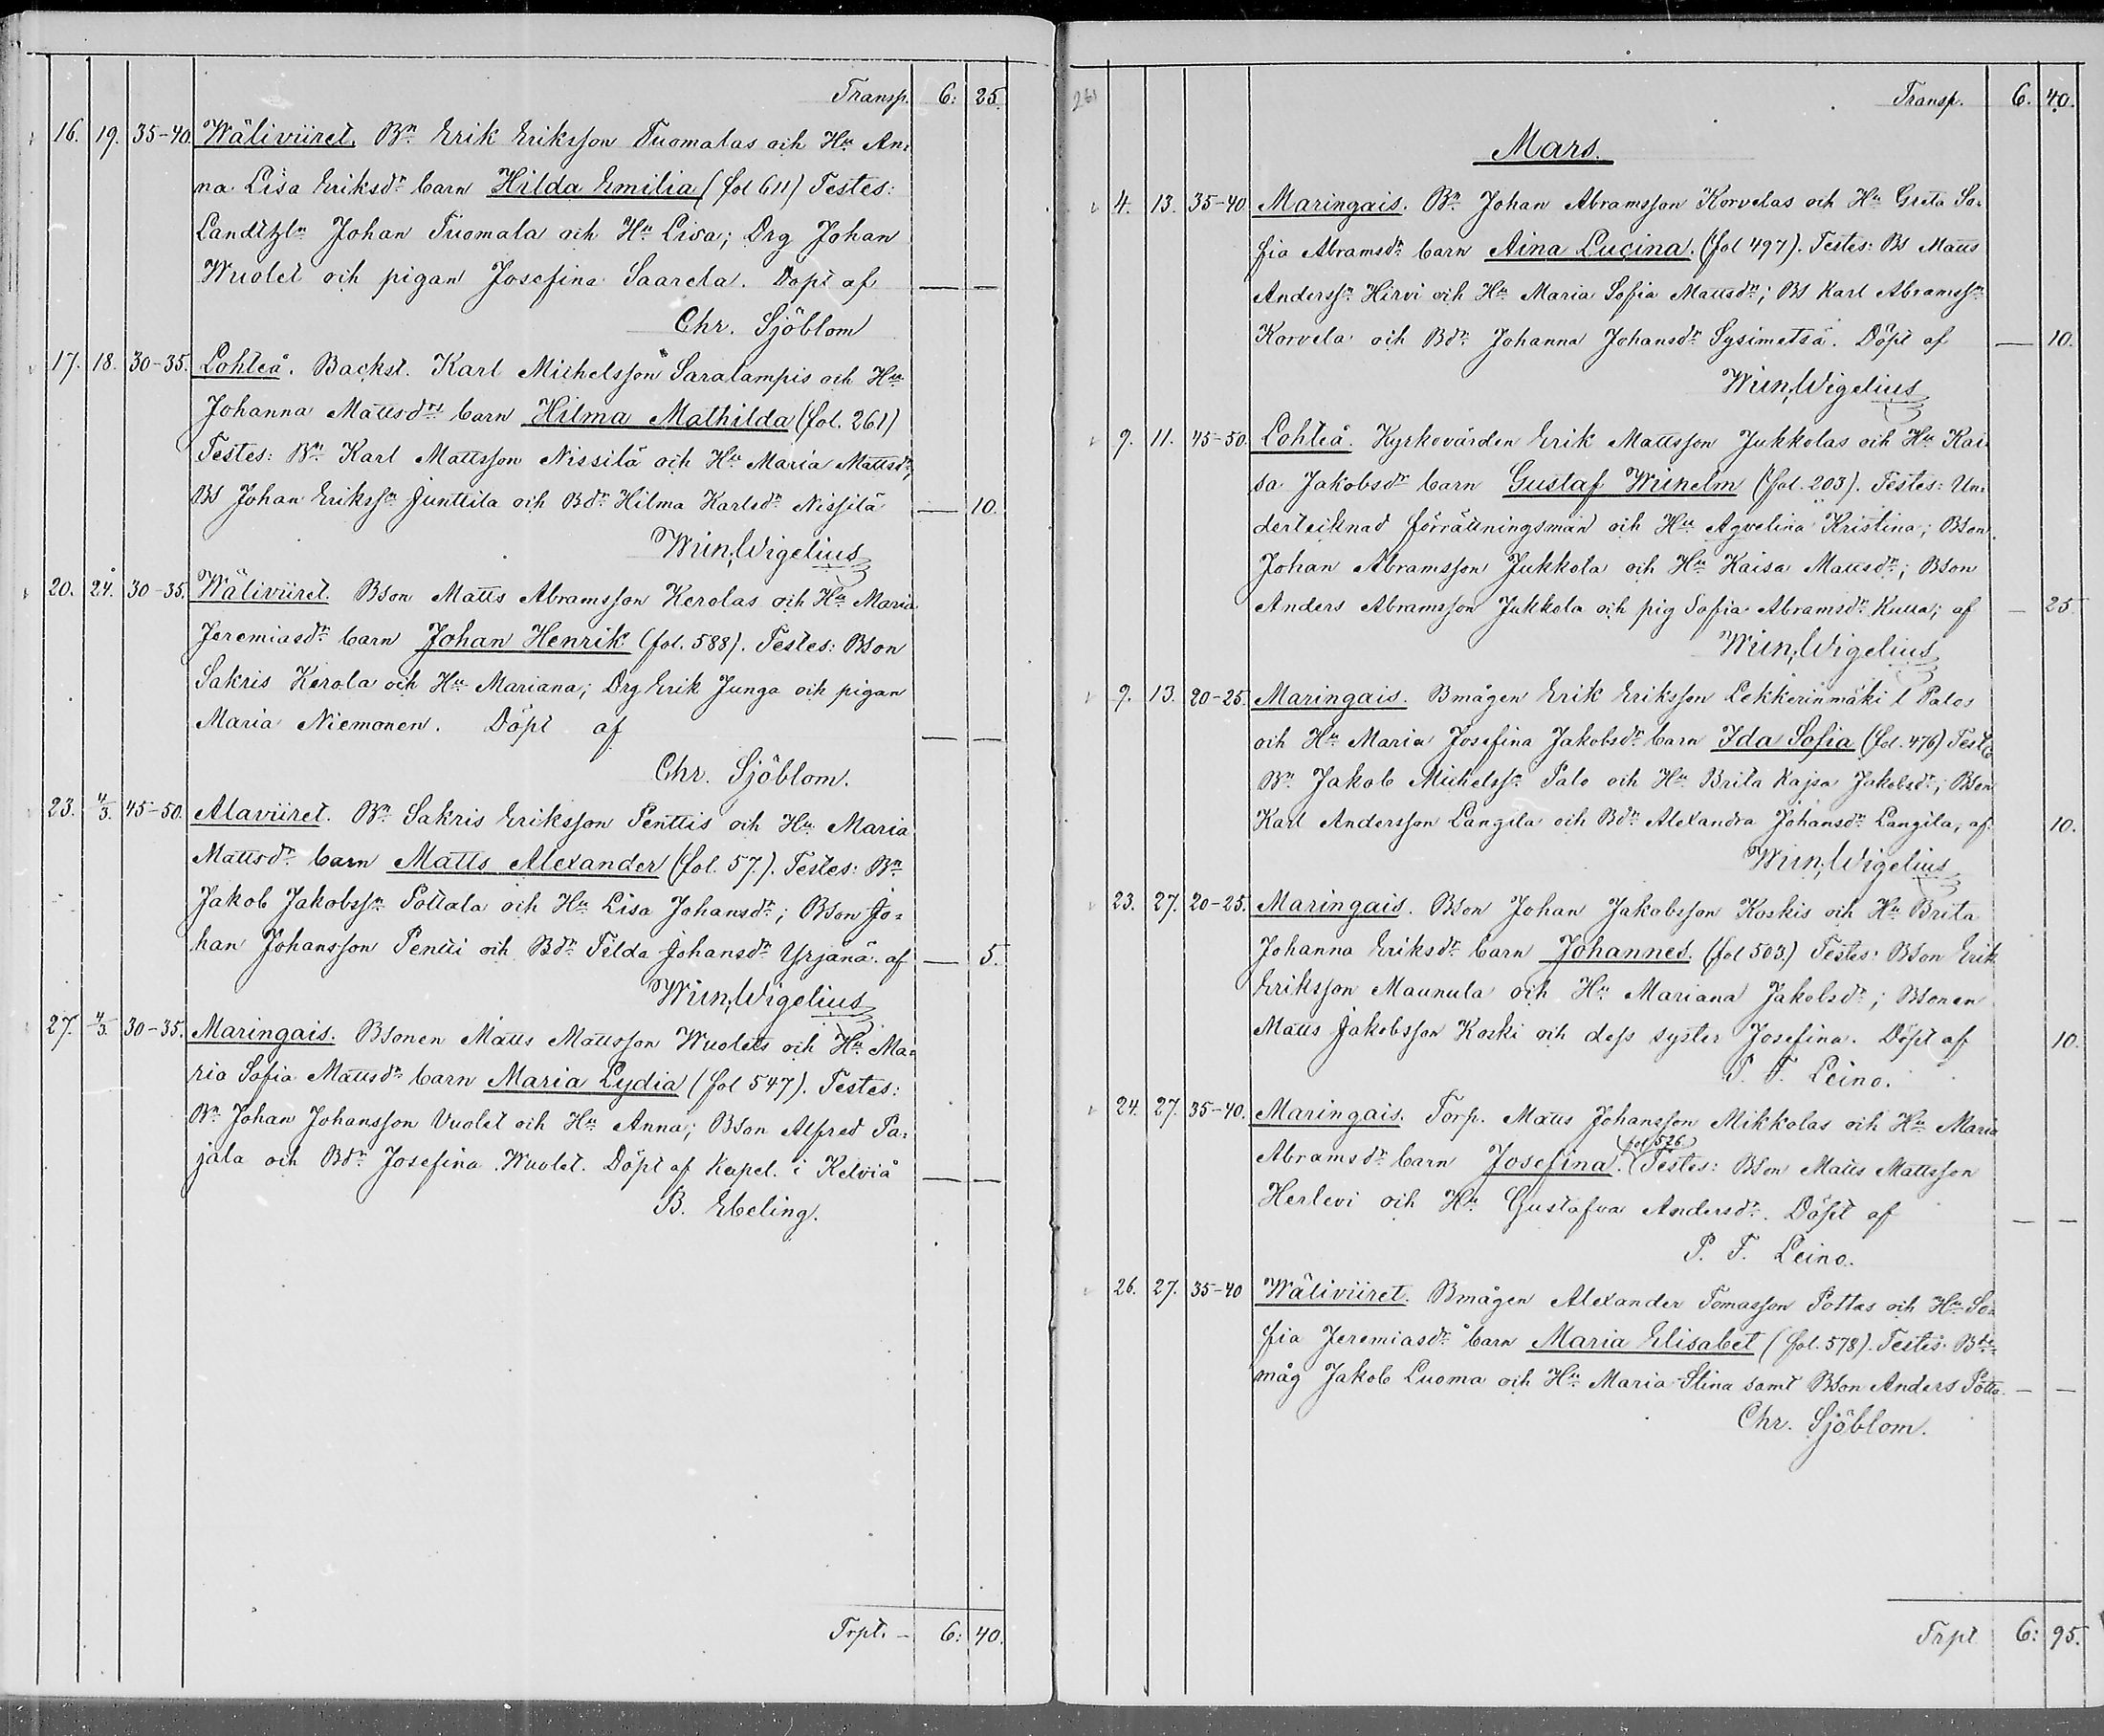 Transp. 6: 25.
16. 19. 35-40. Wäliviiret. Bn Erik Eriksson Tuomalas och Hu An-
na Lisa Eriksdr barn Hilda Emilia (fol 611) Testes:
Johan Tuomala och Hu Lisa; Drg Johan
Wuolet och pigan Josefina Saarela. Döpt af — —
Chr. Sjöblom
17. 18. 30-35. Lohteå. Backst. Karl Michelsson Saralampis och Hu
Johanna Mattsdrs barn Hilma Mathilda (fol. 261)
Testes: Bn Karl Mattsson Nissilä och Hu Maria Mattsdr,
BS Johan Erikssn Junttila och Bdr Hilma Karlsdr Nissilä — 10.
Wigelius
20. 24. 30-35. Wäliviiret. Bson Matts Abramsson Kerolas och Hu Maria
Jeremiasdr barn Johan Henrik (fol. 588). Testes: Bson
Sakris Kerola och Hu Mariana; Drg Erik Junga och pigan
Maria Niemonen. Döpt af — —
Chr. Sjöblom.
23. 4/3. 45-50. Alaviiret. Bn Sakris Eriksson Penttis och Hu Maria
Mattsdr barn Matts Alexander (fol. 57.). Testes: Bn
Jakob Jakobssn Pottala och Hu Lisa Johansdr; Bson Jo-
han Johansson Pentti och Bdr Tilda Johansdr Yrjänä. af — 5.
Wigelius
27. 4/3. 30-35. Maringais. Bsonen Matts Mattsson Wuolets och Hu Ma-
ria Sofia Mattsdr barn Maria Lydia (fol 547). Testes:
Bn Johan Johansson Vuolet och Hu Anna; Bson Alfred Pa-
jala och Bdr Josefina Wuolet. Döpt af Kapel. i Kelviå — —
B. Ebeling.
Trpt. — 6: 40.
261
Transp. 6. 40.
Mars.
4. 13. 35-40 Maringais. Bn Johan Abramsson Korvelas och Hu Greta So-
fia Abramsdr barn Aina Lucina. (fol 497). Testes: BS Matts
Anderssn Hirvi och Hu Maria Sofia Mattsdr; BS Karl Abramssn
Korvela och Bdr Johanna Johansdr Sysimetsä. Döpt af — 10.
Wigelius
9. 11. 45-50. Lohteå. Kyrkovärden Erik Mattsson Jukkolas och Hu Kai-
sa Jakobsdr barn Gustaf Wilhelm (fol. 203). Testes: Un-
derteiknad förrättningsman och Hu Agvelina Kristina; Bson
Johan Abramsson Jukkola och Hu Kaisa Mattsdr; Bson
Anders Abramsson Jukkola och pig Sofia Abramsdr af — 25.
Wigelius
9. 13. 20-25. Maringais. Bmågen Erik Eriksson Lekkerinmäki l Palos
och Hu Maria Josefina Jakobsdr barn Ida Sofia (fol. 476) Testes
Bn Jakob Michelssn Palo och Hu Brita Kajsa Jakobsdr; Bson
Karl Andersson Langila och Bdr Alexandra Johansdr Langila, af 10.
Wigelius
23. 27. 20-25. Maringais. Bson Johan Jakobsson Koskis och Hu Brita
Johanna Eriksdr barn Johannes. (fol 503.) Testes: Bson Erik
Eriksson Maunula och Hu Mariana Jakobsdr; Bsonen
Matts Jakobsson Koski och dess syster Josefina. Döpt af 10.
P. F. Leino.
24. 27. 35-40. Maringais. Torp. Matts Johansson Mikkolas och Hu Maria
Abramsdr barn Josefina. (fol 526) Testes: Bson Matts Mattsson
Herlevi och Hu Gustafva Andersdr. Döpt af — —
P. F. Leino.
26. 27. 35-40 Wäliviiret. Bmågen Alexander Tomasson Pottas och Hu So-
fia Jeremiasdr barn Maria Elisabet (fol. 578). Testes: Bde-
måg Jakob Luoma och Hu Maria Stina samt Bson Anders Potta. — —
Chr. Sjöblom.
Trpt 6: 95.